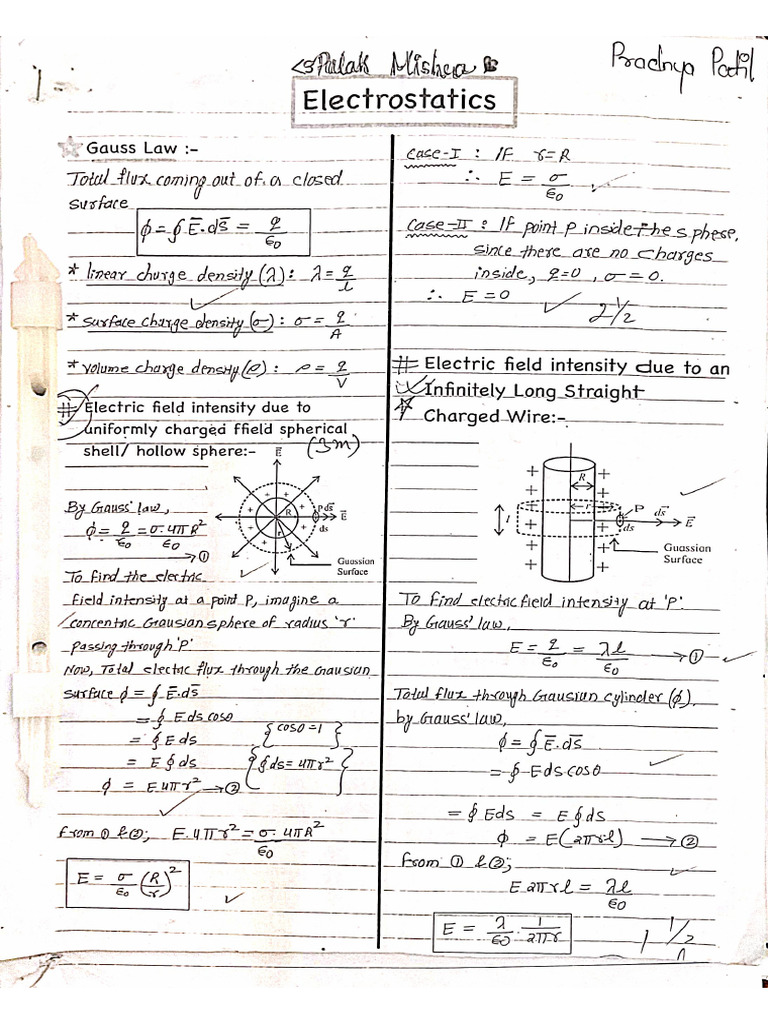 Palak Mishra
Pradnya Patil
1
Electrostatics
Gauss Law :-
Total flux coming out of a closed
surface
ϕ = ∮ E̅·ds̅ = q/ε₀
* linear charge density (λ) : λ = q/l
* surface charge density (σ) : σ = q/A
* volume charge density (ρ) : ρ = q/V
# Electric field intensity due to
uniformly charged ffield spherical
shell/ hollow sphere:- (3m)
E̅
R
r
P ds̅
E̅
ds
Guassian
Surface
By Gauss' law,
ϕ = q/ε₀ = σ·4πR²/ε₀
→ ①
To find the electric
field intensity at a point P, imagine a
concentric Gausian sphere of radius 'r'
passing through 'P'
Now, Total electric flux through the Gausian
surface ϕ = ∮ E̅·ds̅
= ∮ E ds cosθ {cosθ = 1}
= ∮ E ds
= E ∮ ds {∮ ds = 4πr²}
ϕ = E 4πr² → ②
from ① & ②; E·4πr² = σ·4πR²/ε₀
E = σ/ε₀ (R/r)²
Case-I : IF r = R
∴ E = σ/ε₀
Case-II : If point P inside the sphese,
since there are no charges
inside, q=0, σ=0.
∴ E = 0
2 1/2
# Electric field intensity due to an
Infinitely Long Straight
Charged Wire:-
R
r
l
P
ds̅
E̅
ds
Guassian
Surface
To find electric field intensity at 'P'.
By Gauss' law,
E = q/ε₀ = λl/ε₀ → ①
Total flux through Gausian cylinder (ϕ).
by Gauss' law,
ϕ = ∮ E̅·ds̅
= ∮ E ds cosθ
= ∮ E ds = E ∮ ds
ϕ = E(2πrl) → ②
from ① & ②;
E 2πrl = λl/ε₀
E = λ/ε₀ · 1/2πr
1 1/2